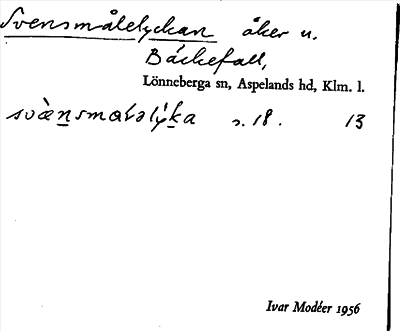 Svensmålelyckan åker u.
Bäckefall,
Lönneberga sn, Aspelands hd, Klm. l.
s. 18. 13
Ivar Modéer 1956